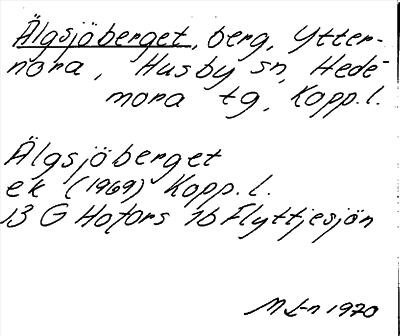 Älgsjöberget, berg, Ytter-
nora, Husby sn, Hede-
mora tg, Kopp.l.
Älgsjöberget
ek (1969) Kopp.l.
13 G Hofors 1b Flyttjesjön
M L-n 1970